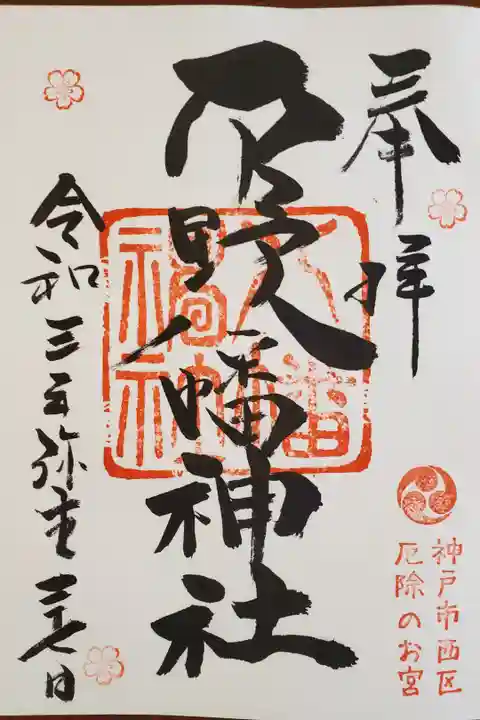 奉拝
野八幡神社
令和三年弥生二十七日
神戸市西区
厄除のお宮